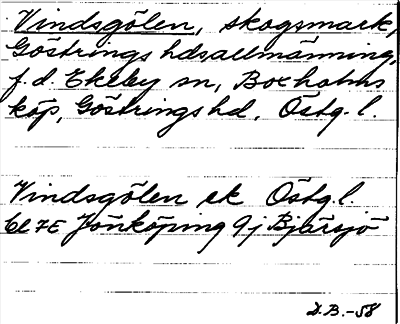 Vindsgölen, skogsmark,
Göstrings hdsallmänning,
f.d. Ekeby sn, Boxholms
köp, Göstrings hd, Östg. l.
Vindsgölen ek Östg. l.
bl 7E Jönköping 9j Bjärsjö
D.B.-58